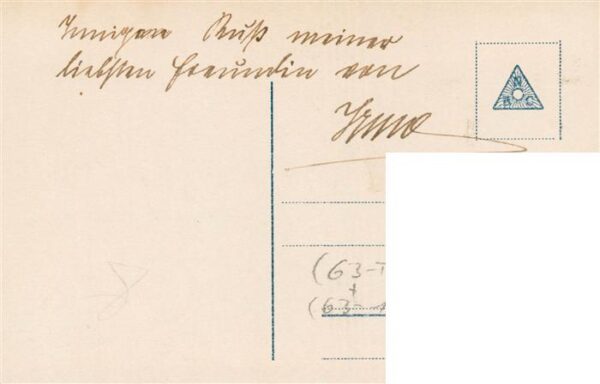 Innigen Kuß meiner
liebsten Freundin von
Irma
N
B C
(63-
+
(63-